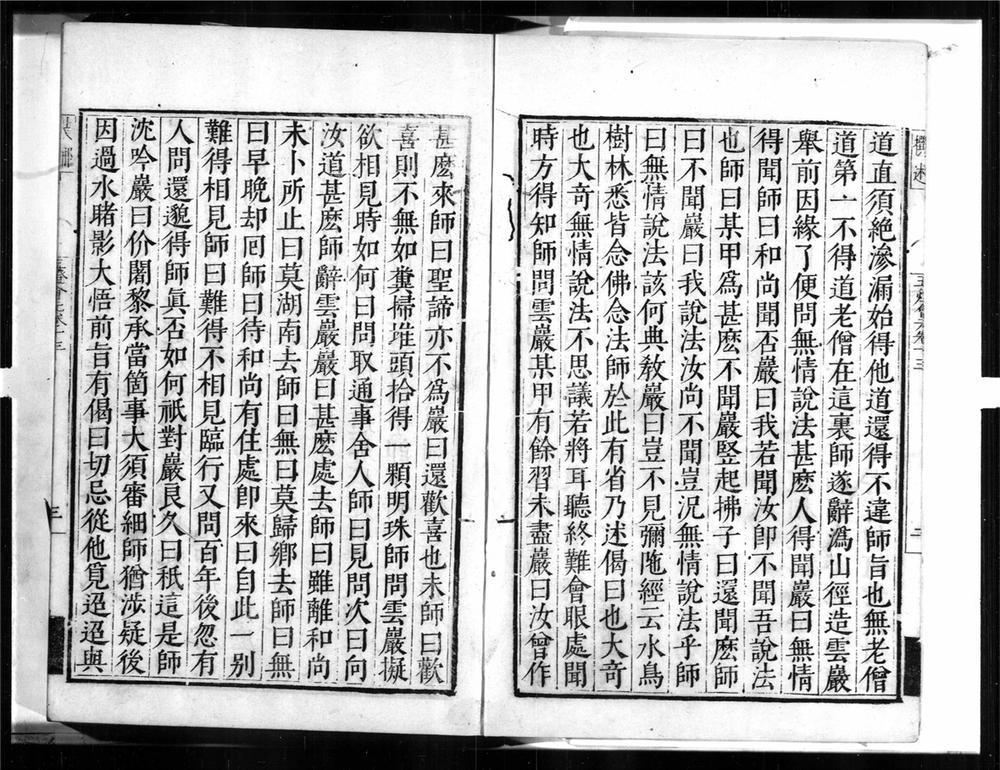 道直須絶滲漏始得他道還得不違師旨也無老僧
道第一不得道老僧在這裏師遂辭溈山徑造雲巖
舉前因緣了便問無情說法甚麽人得聞巖曰無情
得聞師曰和尚聞否巖曰我若聞汝卽不聞吾說法
也師曰某甲爲甚麽不聞巖竪起拂子曰還聞麽師
曰不聞巖曰我說法汝尚不聞豈況無情說法乎師
曰無情說法該何典教巖曰豈不見彌陁經云水鳥
樹林悉皆念佛念法師於此有省乃述偈曰也大奇
也大奇無情說法不思議若將耳聽終難會眼處聞
時方得知師問雲巖某甲有餘習未盡巖曰汝曾作
甚麽來師曰聖諦亦不爲巖曰還歡喜也未師曰歡
喜則不無如糞掃堆頭拾得一顆明珠師問雲巖擬
欲相見時如何曰問取通事舍人師曰見問次曰向
汝道甚麽師辭雲巖巖曰甚麽處去師曰雖離和尚
未卜所止曰莫湖南去師曰無曰莫歸鄉去師曰無
曰早晚却囘師曰待和尚有住處卽來曰自此一別
難得相見師曰難得不相見臨行又問百年後忽有
人問還邈得師眞否如何祇對巖良久曰秖這是師
沈吟巖曰价闍黎承當箇事大須審細師猶涉疑後
因過水睹影大悟前旨有偈曰切忌從他覓迢迢與
三